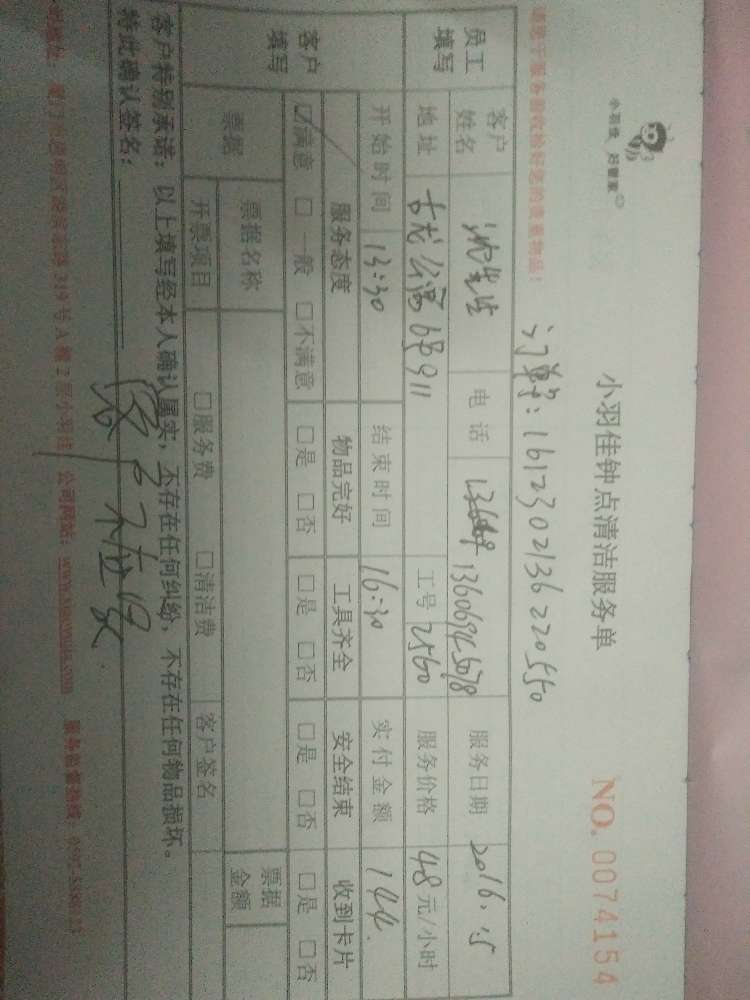 小羽佳 好管家
小羽佳钟点清洁服务单
NO. 0074154
请您于服务前收捡好您的贵重物品!
订单号:1612302136220550
员工填写 客户姓名 沈先生 电话 13606945078 服务日期 2016.
地址 古龙公寓6号911 工号 2560 服务价格 48元/小时
开始时间 13:30 结束时间 16:30 实付金额 144.
客户填写 服务态度 物品完好 工具齐全 安全结束 收到卡片
☑满意 □一般 □不满意 □是 □否 □是 □否 □是 □否 □是 □否
票据 票据名称 票据金额
开票项目 □服务费 □清洁费 客户签名
客户特别承诺:以上填写经本人确认属实,不存在任何纠纷,不存在任何物品损坏。
特此确认签名:
319号A幢2层小羽佳 公司网站:www.xiaoyujia.com 服务监督热线: